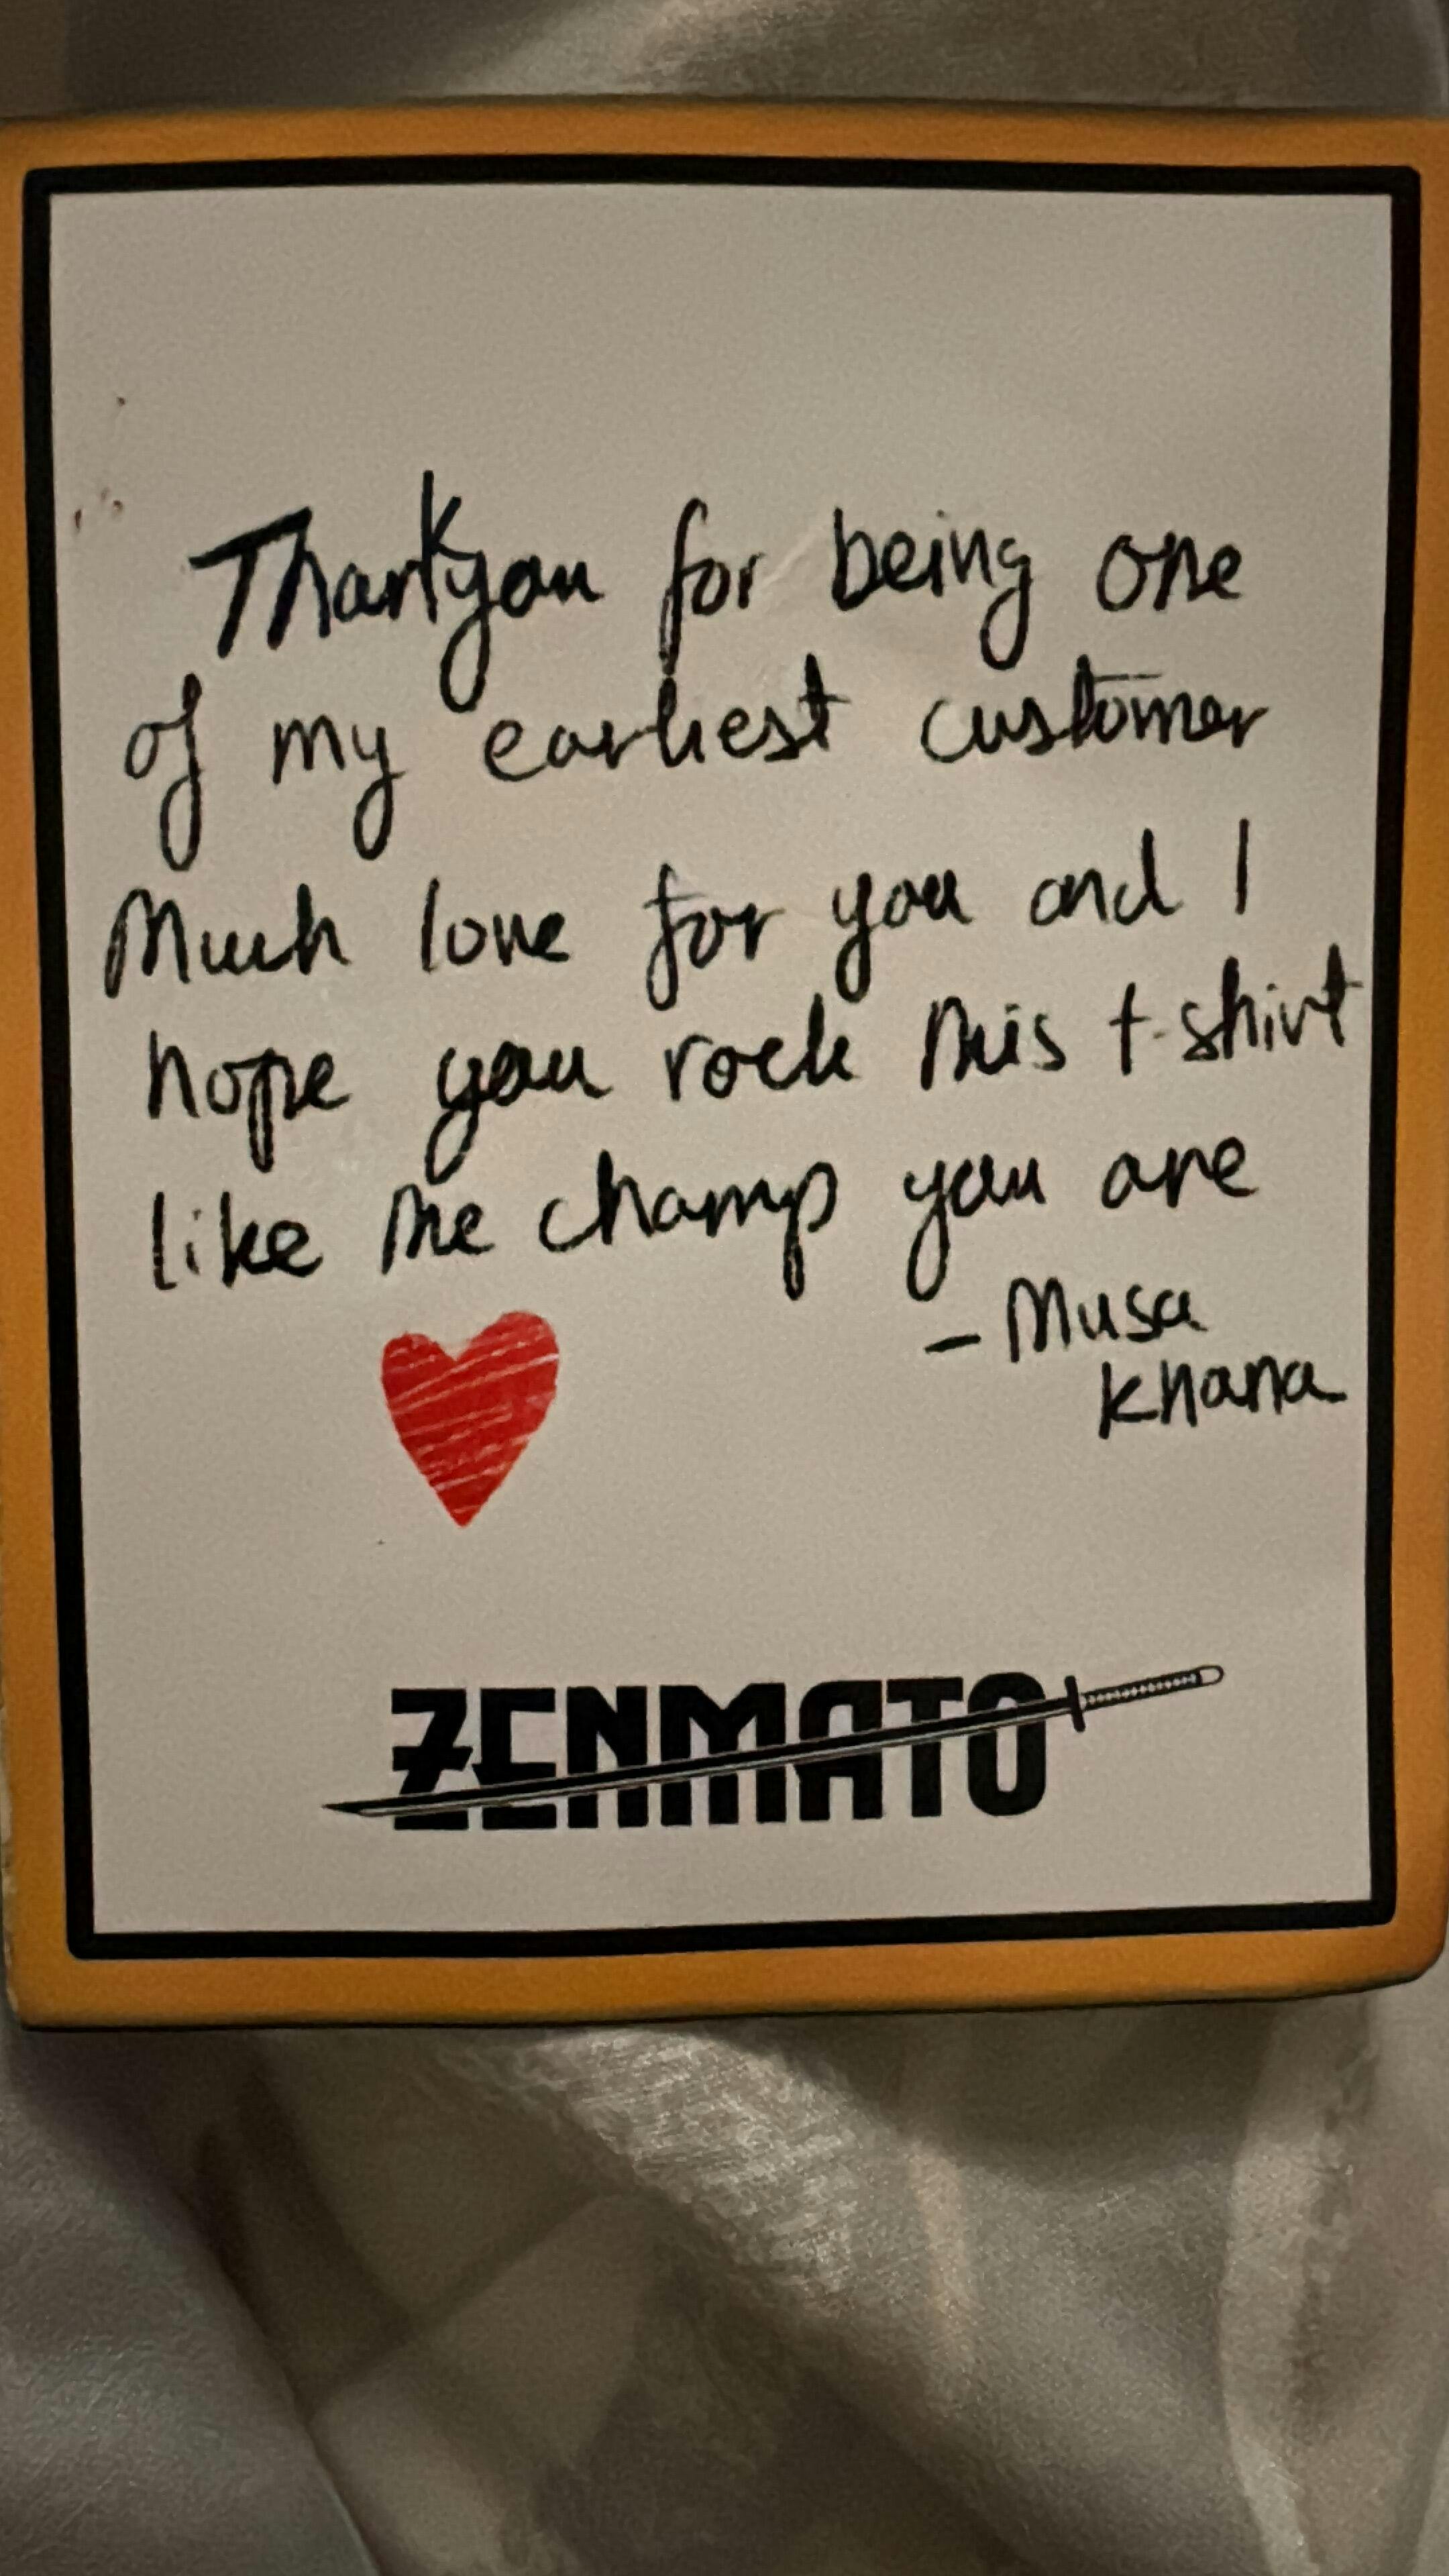 Thankyou for being one
of my earliest customer
Much love for you and I
hope you rock this t-shirt
like the champ you are
- Musa
Khana
ZENMATO